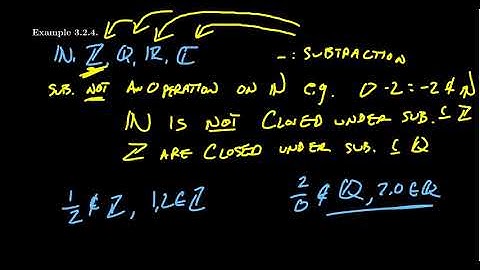 Example 3.2.4.
ℕ, ℤ, ℚ, ℝ, ℂ   −: SUBTRACTION
SUB. NOT AN OPERATION ON ℕ e.g. 0-2=-2∉ℕ
ℕ IS NOT CLOSED UNDER SUB. ⊆ ℤ
ℤ ARE CLOSED UNDER SUB. ⊆ ℚ
1/2 ∉ ℤ, 1,2∈ℤ   2/0 ∉ ℚ, 2.0∈ℚ